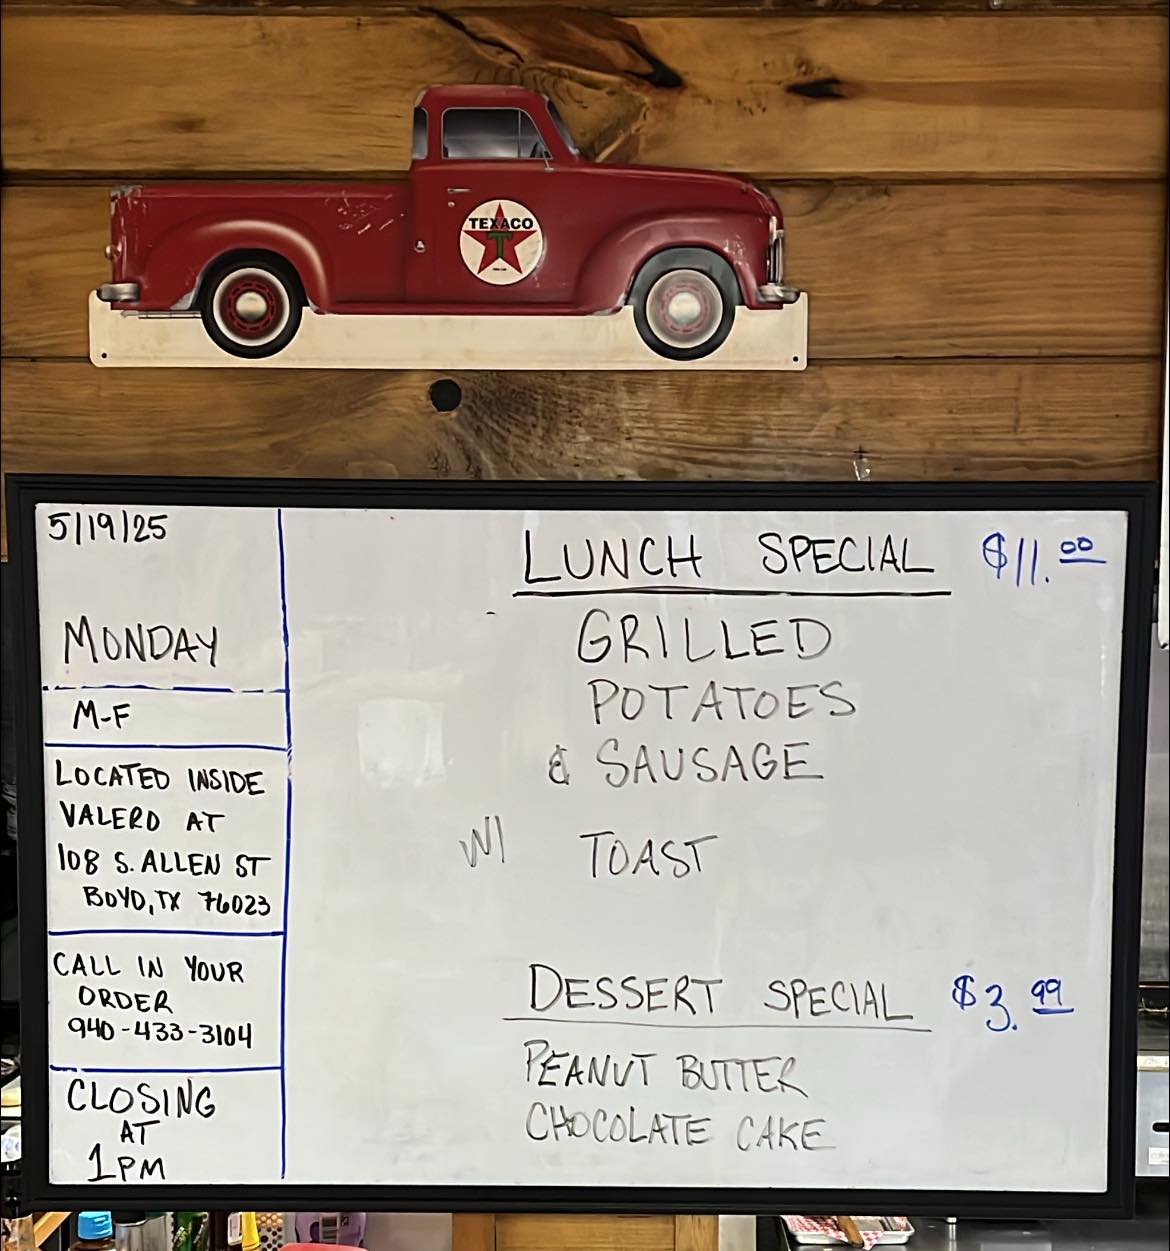 TEXACO
T
5/19/25
MONDAY
M-F
LOCATED INSIDE
VALERO AT
108 S. ALLEN ST
BOYD, TX 76023
CALL IN YOUR
ORDER
940-433-3104
CLOSING
AT
1PM
LUNCH SPECIAL $11.00
GRILLED
POTATOES
& SAUSAGE
W/ TOAST
DESSERT SPECIAL $3.99
PEANUT BUTTER
CHOCOLATE CAKE